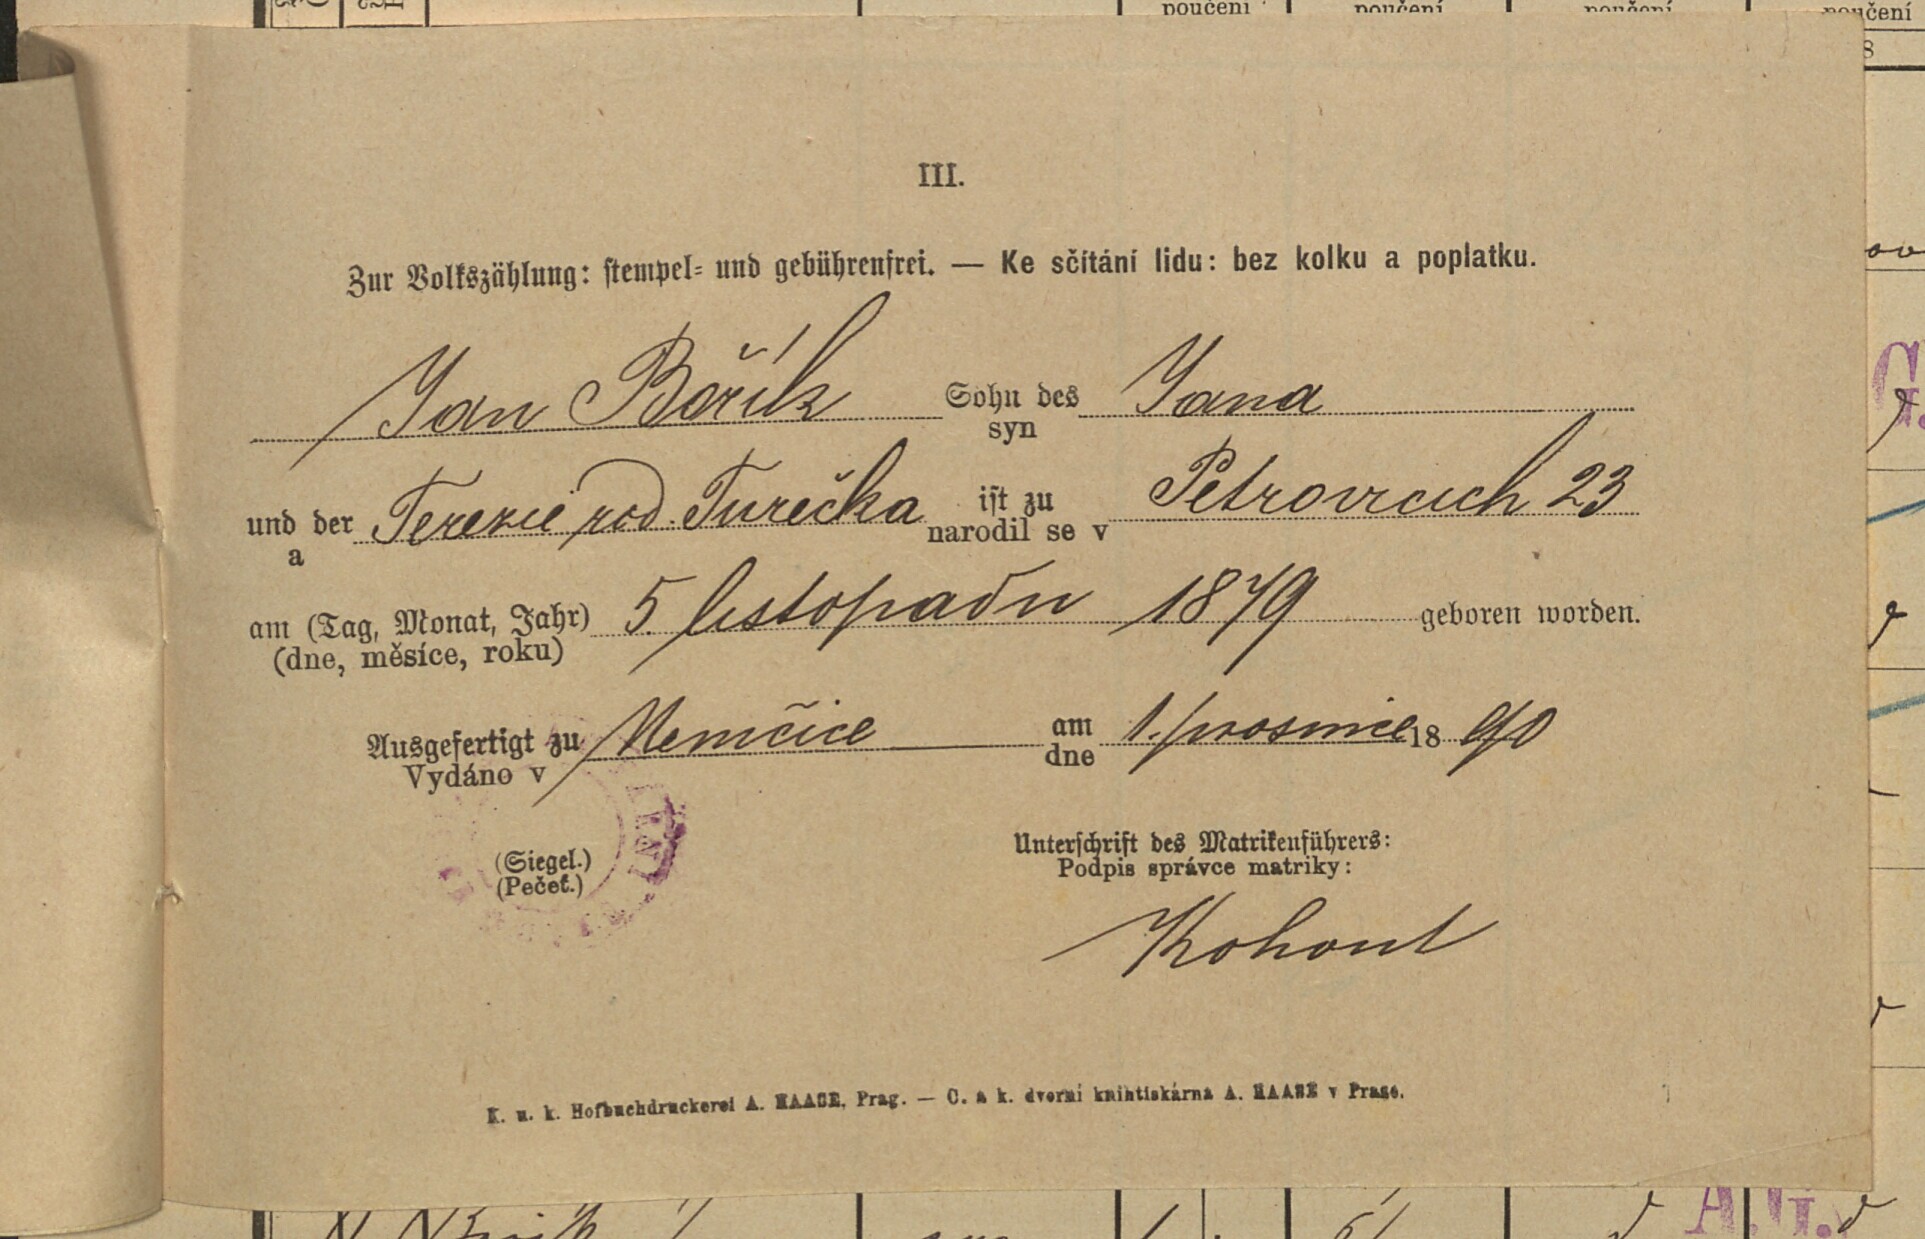 poučení poučení poučení poučení
8
III.
Zur Volkszählung: stempel- und gebührenfrei. — Ke sčítání lidu: bez kolku a poplatku.
Jan Bořík Sohn des Jana
syn
und der Terezie rod. Turečka ist zu Petrovicích 23
a narodil se v
am (Tag, Monat, Jahr) 5. listopadu 1879 geboren worden.
(dne, měsíce, roku)
Ausgefertigt zu Nemčice am 1. prosince 18 90
Vydáno v dne
(Siegel.)
(Pečeť.)
Unterschrift des Matrikenführers:
Podpis správce matriky:
Kohout
K. u. k. Hofbuchdruckerei A. HAASE, Prag. — C. a k. dvorní knihtiskárna A. HAASE v Praze.
A.G.